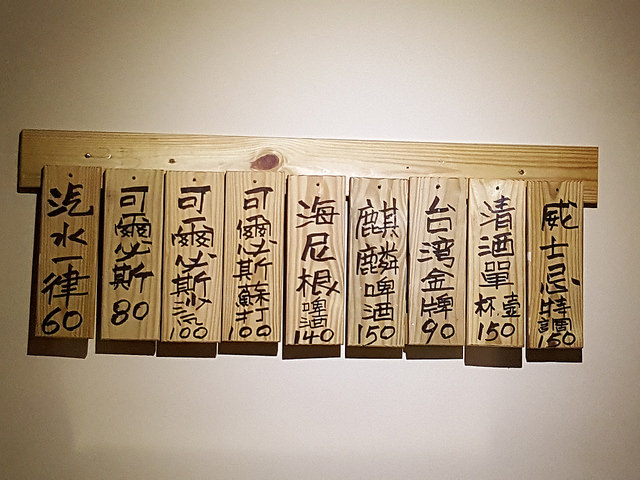 汽水一律60
可爾必斯80
可爾必斯沙瓦100
可爾必斯蘇打100
海尼根啤酒140
麒麟啤酒150
台湾金牌90
清酒單壹杯150
威士忌特調150